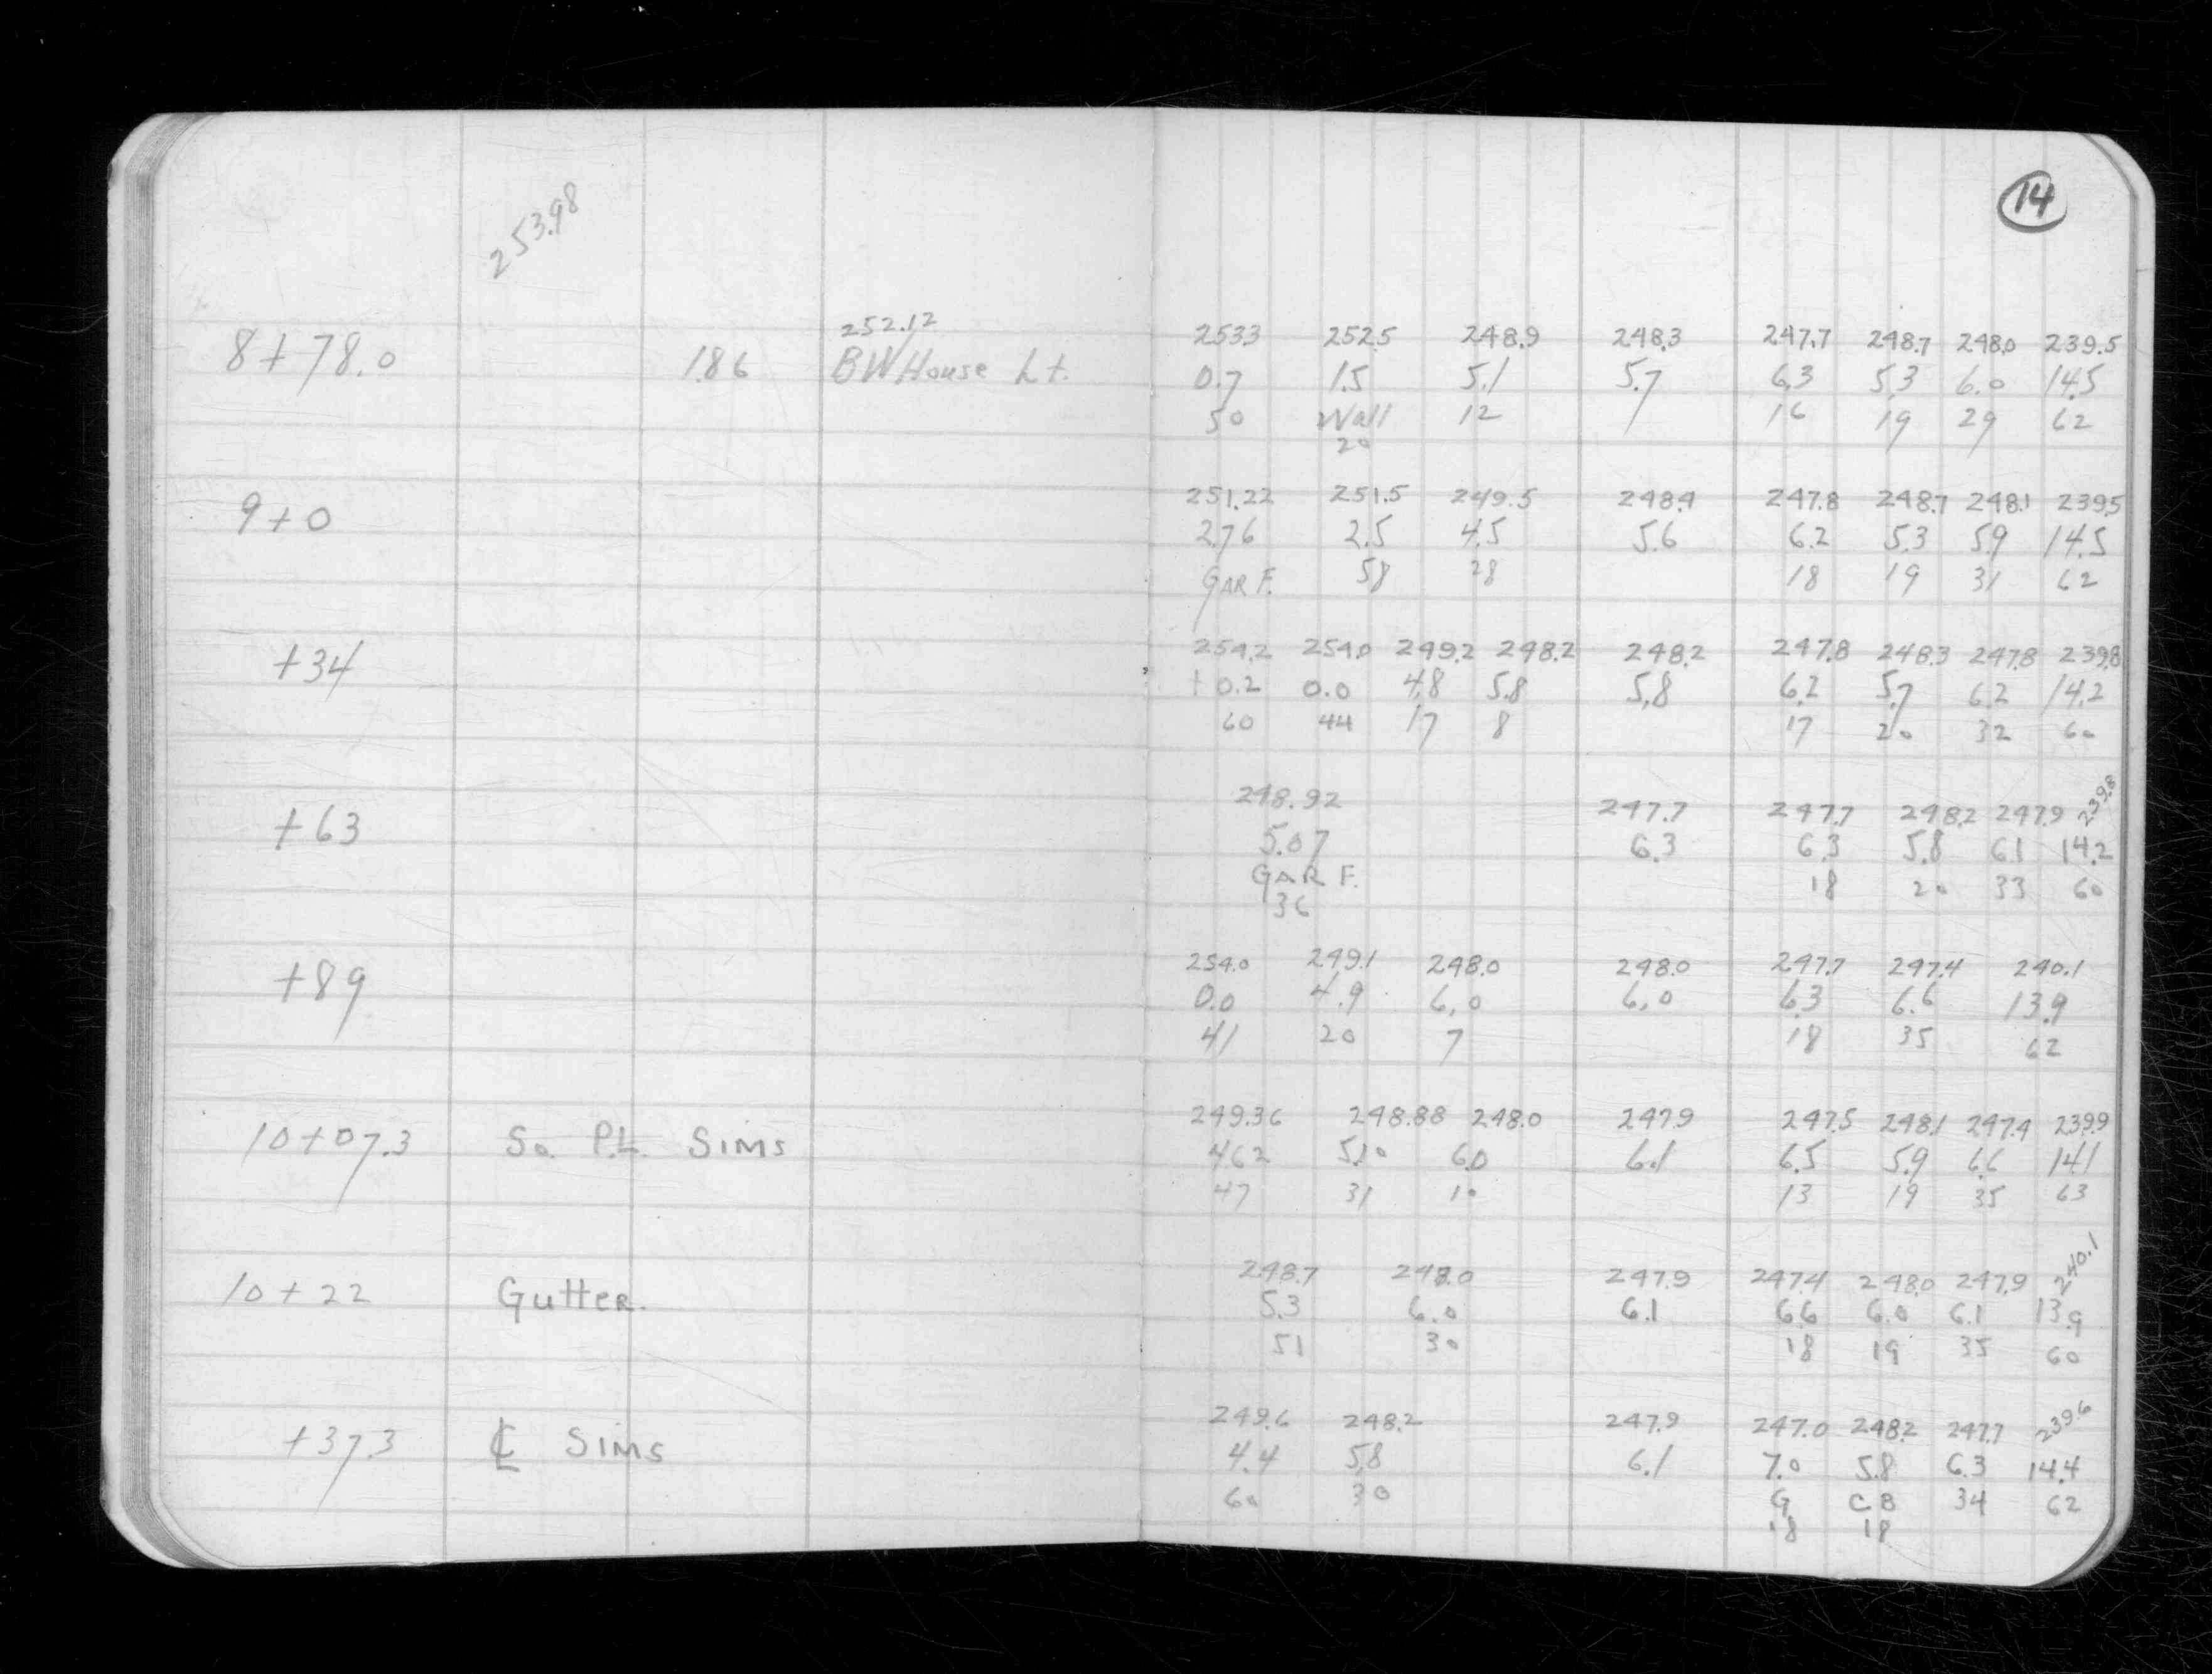 14
253.98
252.12
8+78.0 1.86 BW House Lt.
253.3 252.5 248.9 248.3 247.7 248.7 248.0 239.5
0.7 1.5 5.1 5.7 6.3 5.3 6.0 14.5
50 Wall 12 16 19 29 62
20
9+0
251.22 251.5 249.5 248.4 247.8 248.7 248.1 239.5
2.76 2.5 4.5 5.6 6.2 5.3 5.9 14.5
GAR F. 58 28 18 19 31 62
+34
254.2 254.0 249.2 248.2 248.2 247.8 248.3 247.8 239.8
+0.2 0.0 4.8 5.8 5.8 6.2 5.7 6.2 14.2
60 44 17 8 17 20 32 60
+63
248.92 247.7 247.7 248.2 247.9 239.8
5.07 6.3 6.3 5.8 6.1 14.2
GAR F. 18 20 33 60
36
+89
254.0 249.1 248.0 248.0 247.7 247.4 240.1
0.0 4.9 6.0 6.0 6.3 6.6 13.9
41 20 7 18 35 62
10+07.3 So. P.L. SIMS
249.36 248.88 248.0 247.9 247.5 248.1 247.4 239.9
4.62 5.10 6.0 6.1 6.5 5.9 6.6 14.1
47 31 10 13 19 35 63
10+22 GutteR.
248.7 248.0 247.9 247.4 248.0 247.9 240.1
5.3 6.0 6.1 6.6 6.0 6.1 13.9
51 30 18 19 35 60
+37.3 ℄ SIMS
249.6 248.2 247.9 247.0 248.2 247.7 239.6
4.4 5.8 6.1 7.0 5.8 6.3 14.4
60 30 G CB 34 62
18 18